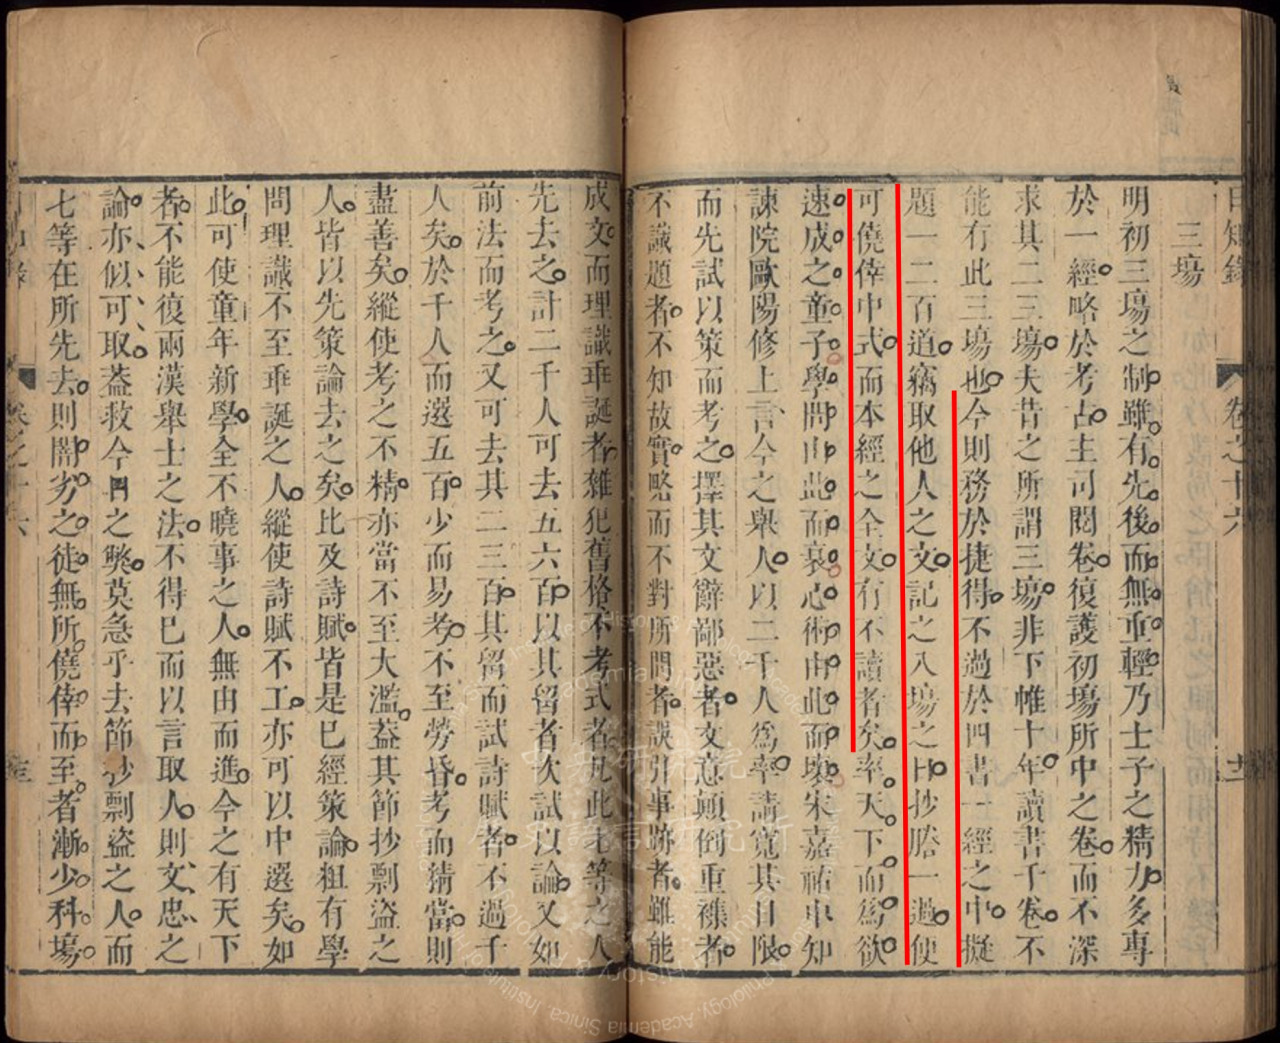 日知錄
卷之十六
三場
明初三場之制雖有先後而無重輕乃士子之精力多專
於一經略於考古主司閱卷復護初場所中之卷而不深
求其二三場夫昔之所謂三場非下帷十年讀書千卷不
能有此三場也今則務於捷得不過於四書一經之中擬
題一二百道竊取他人之文記之入場之日抄謄一過便
可僥倖中式而本經之全文有不讀者矣率天下而為欲
速成之童子學問由此而衰心術由此而壞宋嘉祐中知
諫院歐陽修上言今之舉人以二千人為率請寬其日限
而先試以策而考之擇其文辭鄙惡者文意顛倒重襍者
不識題者不知故實略而不對所問者誤引事跡者雖能
成文而理識乖誕者雜犯舊格不考式者凡此七等之人
先去之計二千人可去五六百以其留者次試以論又如
前法而考之又可去其二三百其留而試詩賦者不過千
人矣於千人而選五百少而易考不至勞昏考而精當則
盡善矣縱使考之不精亦當不至大濫蓋其節抄剽盜之
人皆以先策論去之矣比及詩賦皆是已經策論粗有學
問理識不至乖誕之人縱使詩賦不工亦可以中選矣如
此可使童年新學全不曉事之人無由而進今之有天下
者不能復兩漢舉士之法不得已而以言取人則文忠之
論亦似可取蓋救今日之獘莫急乎去節抄剽盜之人而
七等在所先去則闇劣之徒無所僥倖而至者漸少科場